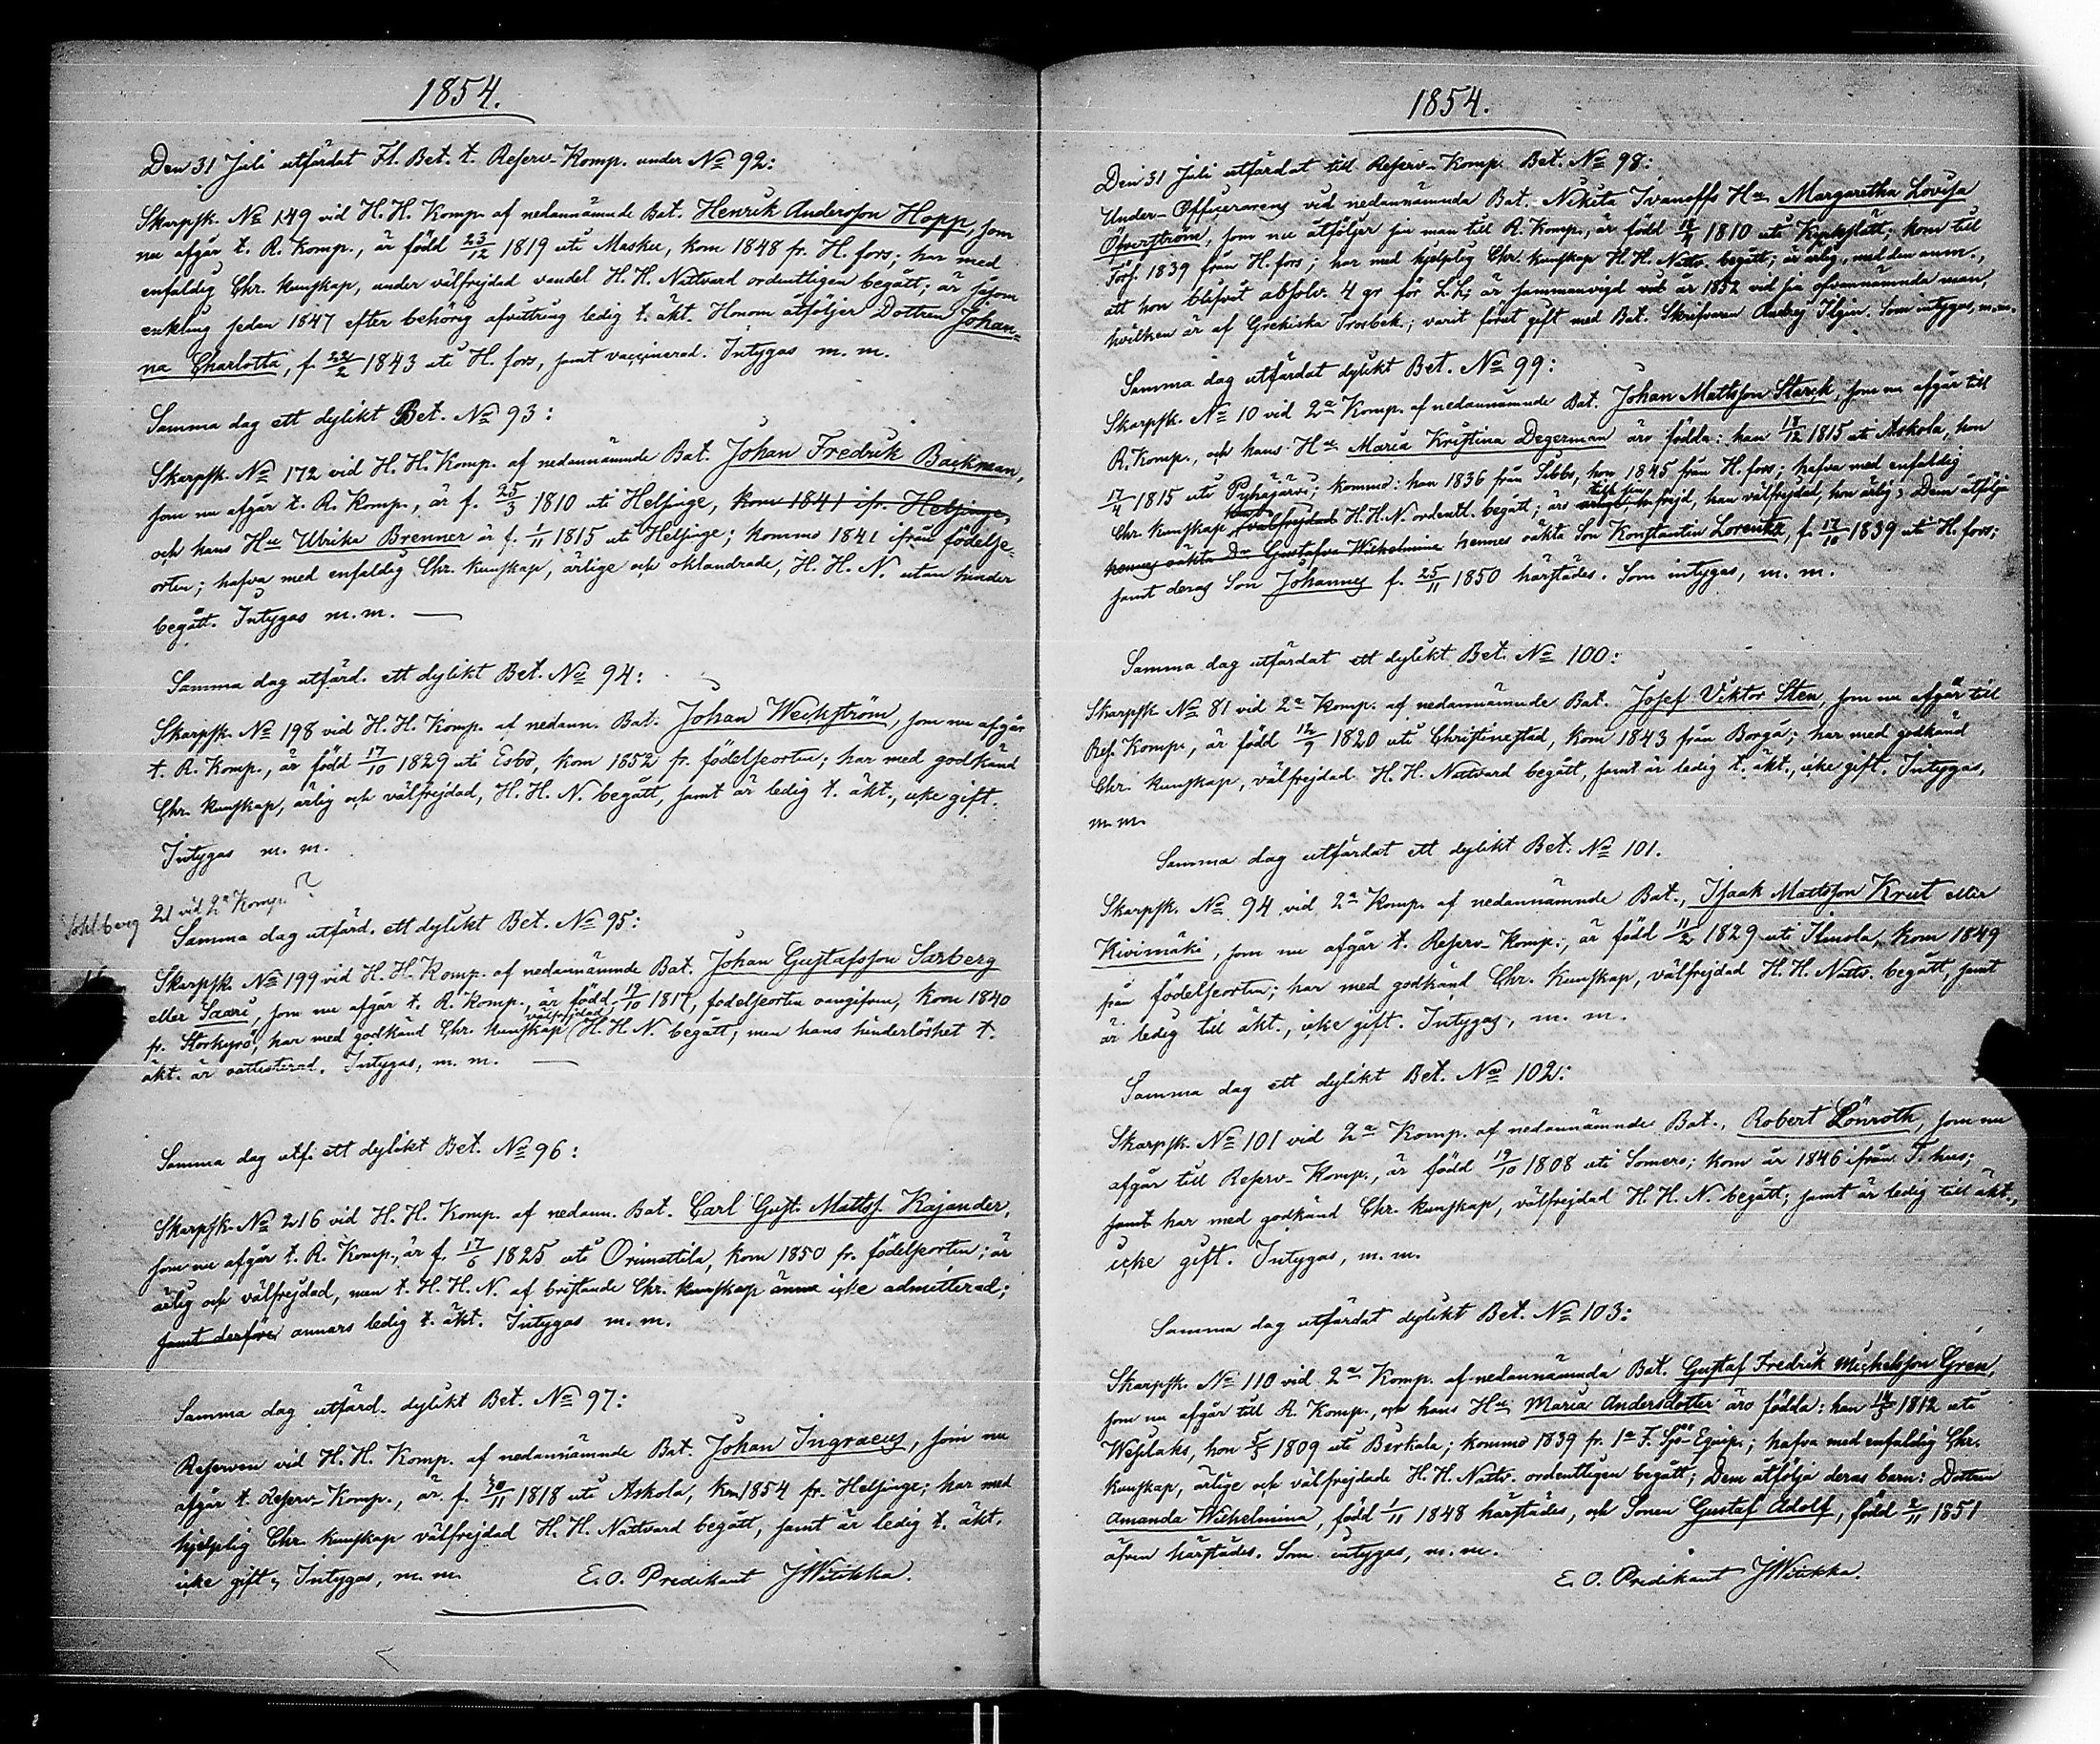 1854.
Den 31 Juli utfärdat Fl. Bet. t. Reserv-Komp. under No 92:
Skarpsk. No 149 vid H. H. Komp. af nedannämnde Bat. Henrik Andersson Hopp, som
nu afgår t. R. Komp., är född 23/12 1819 uti Masku, kom 1848 fr. H. fors; har med
enfaldig Chr. kunskap, under välfrejdad vandel H. H. Nattvard ordentligen begått; är såsom
enkling sedan 1847 efter behörig afvittring ledig t. äkt. Honom åtföljer Dottren Johan-
na Charlotta, f. 22/2 1843 uti H. fors, samt vaccinerad. Intygas m. m.
Samma dag ett dylikt Bet. No 93:
Skarpsk. No 172 vid H. H. Komp. af nedannämnde Bat. Johan Fredrik Backman,
som nu afgår t. R. Komp., är f. 25/3 1810 uti Helsinge, kom 1841 ifr. Helsinge,
och hans Hu Ulrika Brenner är f. 1/11 1815 uti Helsinge; kommo 1841 ifrån födelse-
orten; hafva med enfaldig Chr. kunskap, ärlige och oklandrade, H. H. N. utan hinder
begått. Intygas m. m.
Samma dag utfärd. ett dylikt Bet. No 94:
Skarpsk. No 198 vid H. H. Komp. af nedann. Bat. Johan Weckström, som nu afgår
t. R. Komp., är född 17/10 1829 uti Esbo, kom 1852 fr. födelseorten; har med godkänd
Chr. kunskap, ärlig och välfrejdad, H. H. N. begått, samt är ledig t. äkt., icke gift.
Intygas m. m.
21 vid 2a Komp. ?
Sohlberg
Samma dag utfärd. ett dylikt Bet. No 95:
Skarpsk. No 199 vid H. H. Komp. af nedannämnde Bat. Johan Gustafsson Sarberg
eller Saari, som nu afgår t. R. Komp., är född 19/10 1817, födelseorten oangifven, kom 1840
fr. Storkyrö, har med godkänd Chr. kunskap välfrejdad H. H. N. begått; men hans hinderlöshet t.
äkt. är oattesterad. Intygas, m. m.
Samma dag utf. ett dylikt Bet. No 96:
Skarpsk. No 216 vid H. H. Komp. af nedann. Bat. Carl Gust. Mattss. Kajander,
som nu afgår t. R. Komp., är f. 17/6 1825 uti Orimattila, kom 1850 fr. födelseorten; är
ärlig och välfrejdad, men t. H. H. N. af bristande Chr. kunskap ännu icke admitterad;
samt derföre annars ledig t. äkt. Intygas m. m.
Samma dag utfärd. dylikt Bet. No 97:
Reserven vid H. H. Komp. af nedannämnde Bat. Johan Ingraeus, som nu
afgår t. Reserv-Komp., är f. 30/11 1818 uti Askola, kom 1854 fr. Helsinge; har med
hjelplig Chr. kunskap välfrejdad H. H. Nattvard begått, samt är ledig t. äkt.
icke gift, Intygas, m. m.
E. O. Predikant J Witikka.
1854.
Den 31 Juli utfärdat till Reserv-Komp. Bet. No 98:
Under-Officerarens vid nedannämnda Bat. Nikita Ivanoffs Hu Margaretha Lovisa
Öfverström, som nu åtföljer sin man till R. Komp., är född 1810 uti Kyrkslätt; kom till
Förs. 1839 från H. fors; har med hjelplig Chr. kunskap H. H. Nattv. begått; är ärlig, med den anm.,
att hon blifvit absolv. 4 gr för L. L; är sammanvigd år 1852 vid sin ofvannämnda man,
hvilken är af Grekiska Trosbek.; varit förut gift med Bat. Skrifvaren Andrej Ilgin. Som intygas, m. m.
Samma dag utfärdat dylikt Bet. No 99:
Skarpsk. No 10 vid 2a Komp. af nedannämnde Bat. Johan Mattsson Starck, som nu afgår till
R. Komp., och hans Hu Maria Kristina Degerman äro födda: han 18/12 1815 uti Askola, hon
17/4 1815 uti Pyhäjärvi; kommo: han 1836 från Sibbo, hon 1845 från H. fors; hafva med enfaldig
Chr. kunskap välfrejdad H. H. N. ordentl. begått; äro frejd, han välfrejdad, hon ärlig; Dem åtfölja
hennes oäkta Dr Gustafva Wilhelmina hennes oäkta Son Konstantin Lorentz, f. 17/10 1839 uti H. fors;
samt deras Son Johannes f. 25/11 1850 härstädes. Som intygas, m. m.
Samma dag utfärdat ett dylikt Bet. No 100:
Skarpsk. No 81 vid 2a Komp. af nedannämnde Bat. Josef Viktor Sten, som nu afgår till
Res. Komp., är född 12/9 1820 uti Christinestad, kom 1843 från Borgå; har med godkänd
Chr. kunskap, välfrejdad H. H. Nattvard begått, samt är ledig t. äkt., icke gift. Intygas,
m. m.
Samma dag utfärdat ett dylikt Bet. No 101.
Skarpsk. No 94 vid 2a Komp. af nedannämnde Bat., Isaak Mattsson Krut eller
Kivimäki, som nu afgår t. Reserv-Komp., är född 11/2 1829 uti Ilmola, kom 1849
från födelseorten; har med godkänd Chr. kunskap, välfrejdad H. H. Nattv. begått, samt
är ledig till äkt., icke gift. Intygas, m. m.
Samma dag ett dylikt Bet. No 102:
Skarpsk. No 101 vid 2a Komp. af nedannämnde Bat., Robert Lönroth, som nu
afgår till Reserv-Komp., är född 19/10 1808 uti Somero; kom år 1846 ifrån T. hus;
samt har med godkänd Chr. kunskap, välfrejdad H. H. N. begått; samt är ledig till äkt.,
icke gift. Intygas, m. m.
Samma dag utfärdat dylikt Bet. No 103:
Skarpsk. No 110 vid 2a Komp. af nedannämnda Bat. Gustaf Fredrik Michelsson Gren,
som nu afgår till R. Komp., och hans Hu Maria Andersdotter äro födda: han 1812 uti
Wesilaks, hon 5/5 1809 uti Berkala; kommo 1839 fr. 1a F. Sjö-Equip.; hafva med enfaldig Chr.
kunskap, ärlige och välfrejdade H. H. Nattv. ordentligen begått; Dem åtfölja deras barn: Dottren
Amanda Wilhelmina, född 1/11 1848 härstädes, och Sonen Gustaf Adolf, född 2/11 1851
äfven härstädes. Som intygas, m. m.
E. O. Predikant J Witikka.